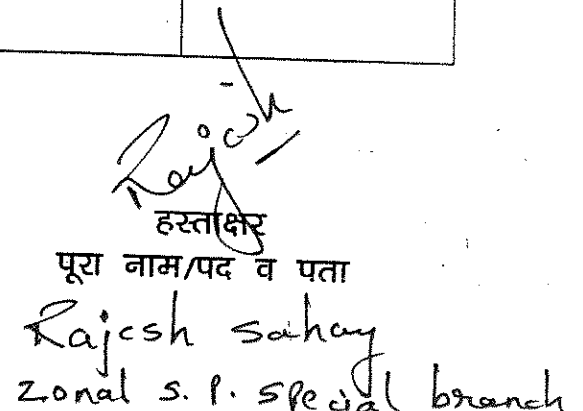 Rajesh
हस्ताक्षर
पूरा नाम/पद व पता
Rajesh Sahay
Zonal S. P. Special branch